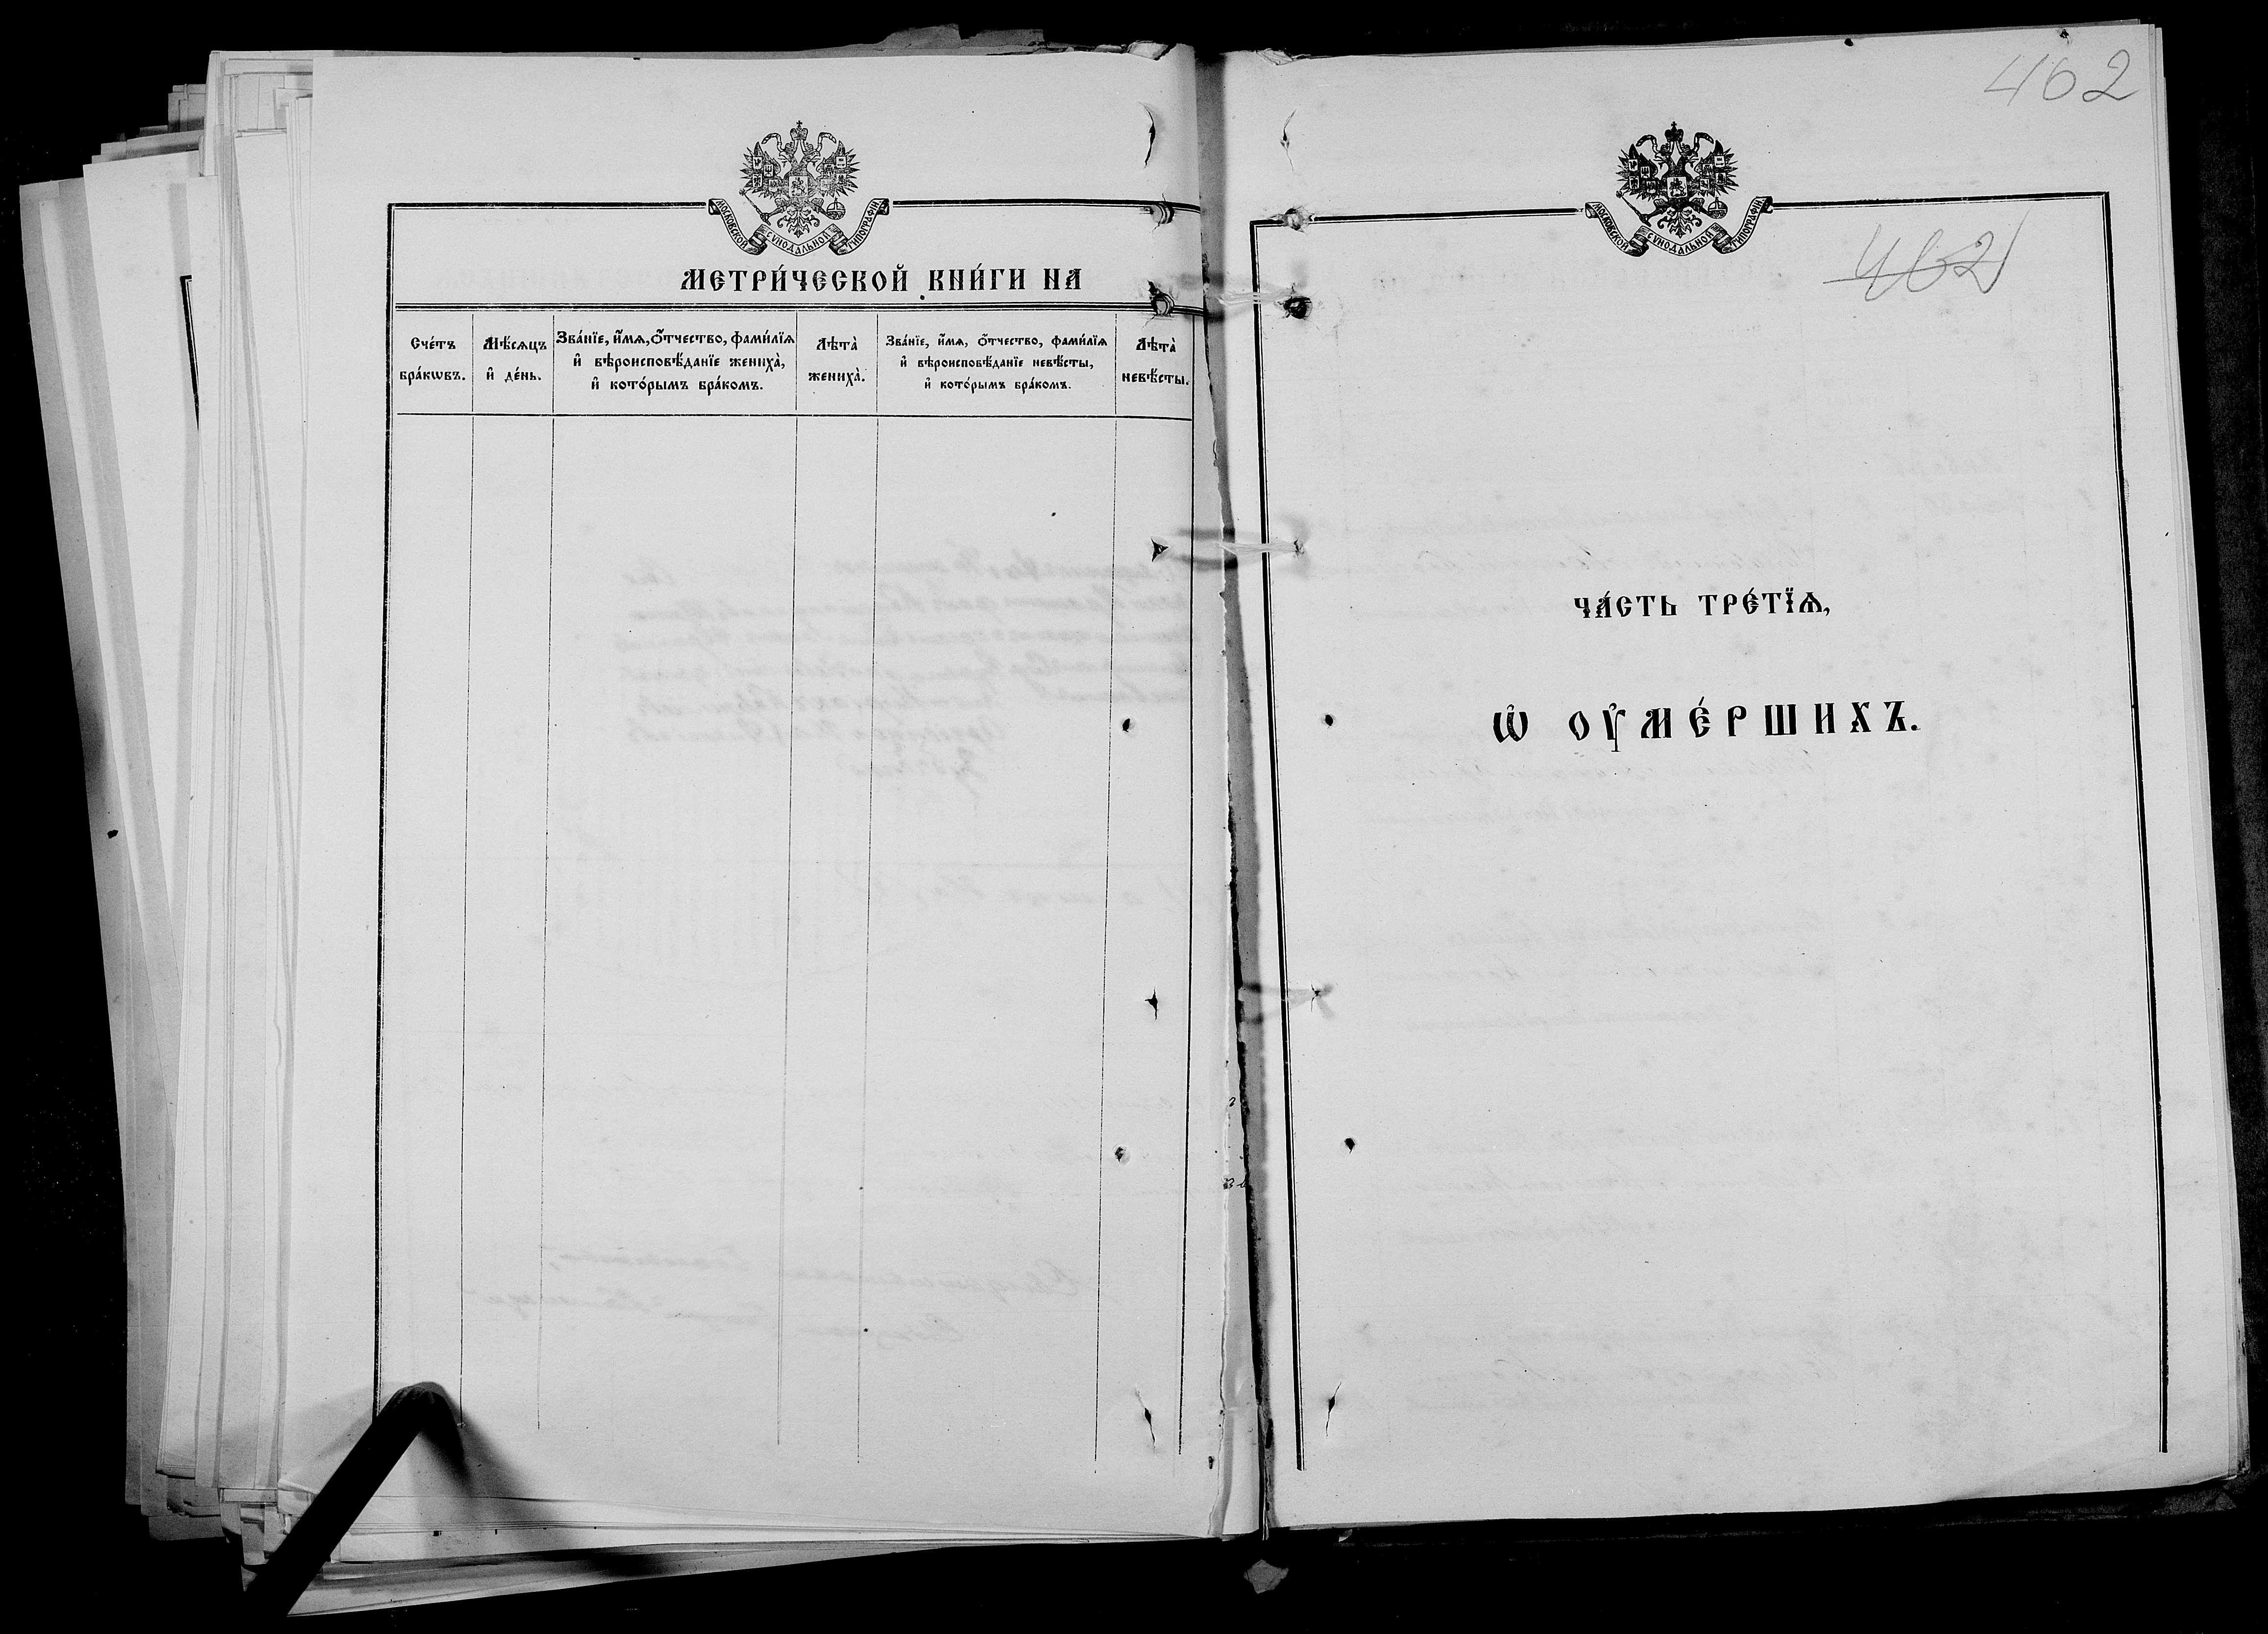 МОСКОВСКОЙ СѴНОДАЛЬНОЙ ТИПОГРАФІИ
МЕТРИ́ЧЕСКОЙ КНИ́ГИ НА
Сче́тъ
бра́кѡвъ.
Мѣ́сѧцъ
и҆ де́нь.
Зва́нїе, и҆́мѧ, ѻ҆́тчество, фами́лїѧ
и҆ вѣроисповѣ́данїе жениха̀,
и҆ кото́рымъ бра́комъ.
Лѣта̀
жениха̀.
Зва́нїе, и҆́мѧ, ѻ҆́тчество, фами́лїѧ
и҆ вѣроисповѣ́данїе невѣ́сты,
и҆ кото́рымъ бра́комъ.
Лѣта̀
невѣ́сты.
462
МОСКОВСКОЙ СѴНОДАЛЬНОЙ ТИПОГРАФІИ
462
ЧА́СТЬ ТРЕ́ТЇѦ,
Ѡ҆ ОУ҆МЕ́РШИХЪ.